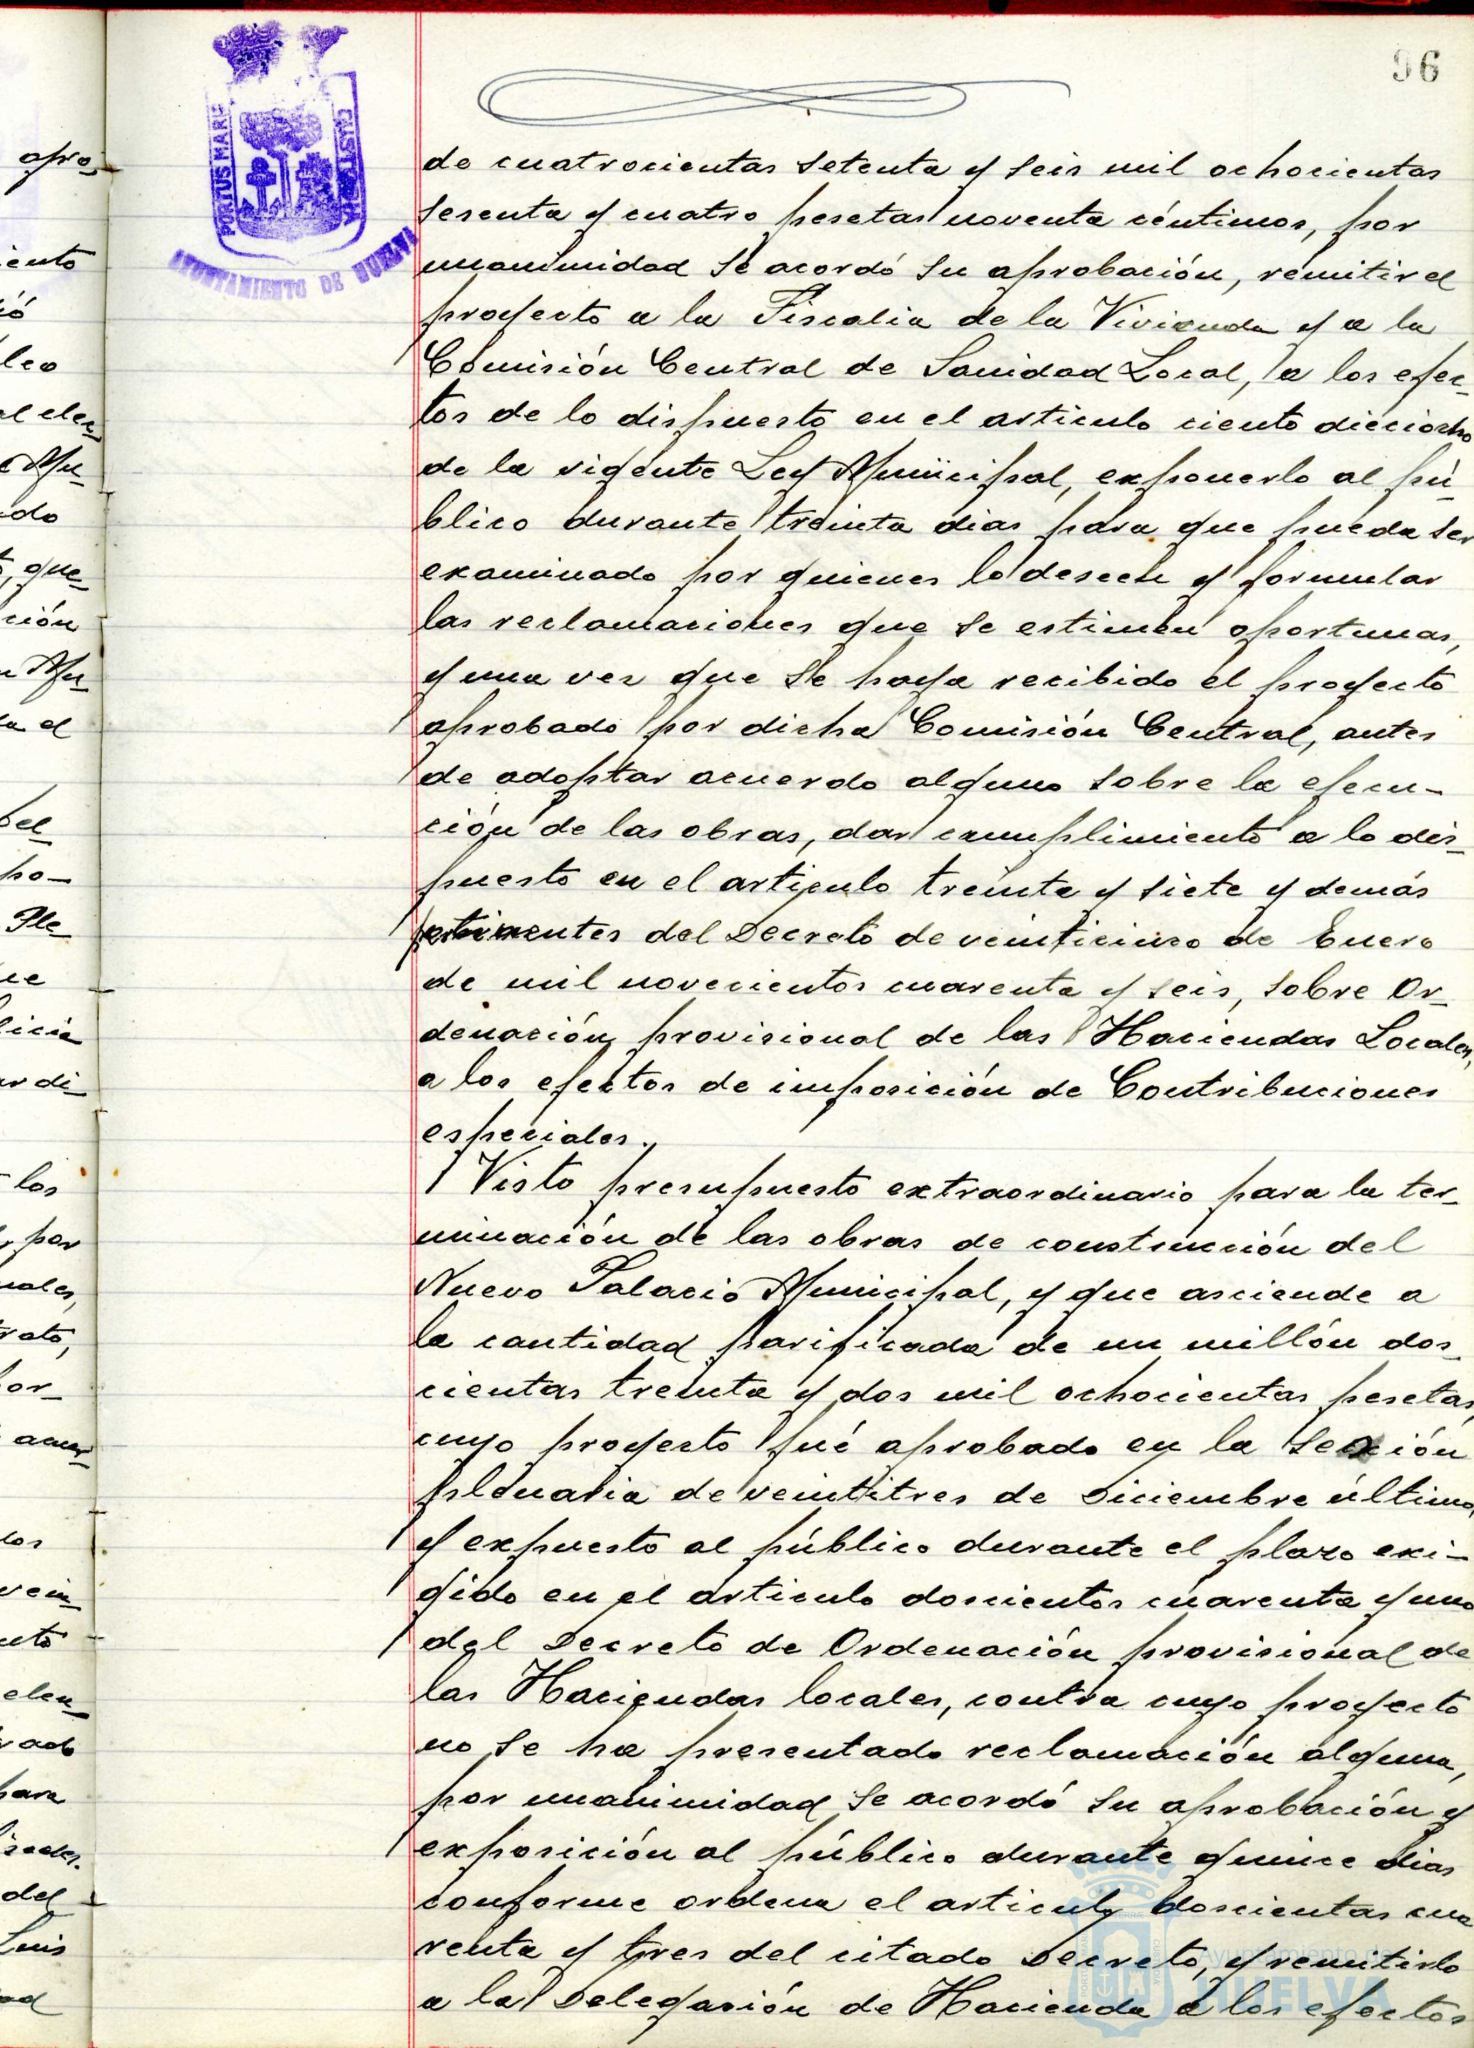 96
PORTUS MARIS
CUSTODIA
AYUNTAMIENTO DE HUELVA
de cuatrocientas setenta y seis mil ochocientas
sesenta y cuatro pesetas noventa céntimos, por
unanimidad se acordó su aprobación, remitir el
proyecto a la Fiscalia de la Vivienda y a la
Comisión Central de Sanidad Local, a los efec-
tos de lo dispuesto en el articulo ciento dieciocho
de la vigente Ley Municipal, exponerlo al pú-
blico durante treinta dias para que pueda ser
examinado por quienes lo deseen y formular
las reclamaciones que se estimen oportunas,
y una vez que se haya recibido el proyecto
aprobado por dicha Comisión Central, antes
de adoptar acuerdo alguno sobre la ejecu-
ción de las obras, dar cumplimiento a lo dis-
puesto en el articulo treinta y siete y demás
pertinentes del Decreto de veinticinco de Enero
de mil novecientos cuarenta y seis, sobre Or-
denación provisional de las Haciendas Locales,
a los efectos de imposición de Contribuciones
especiales.
Visto presupuesto extraordinario para la ter-
minación de las obras de construcción del
Nuevo Palacio Municipal, y que asciende a
la cantidad parificada de un millón dos-
cientas treinta y dos mil ochocientas pesetas,
cuyo proyecto fué aprobado en la sección
plenaria de veintitres de Diciembre último,
y expuesto al público durante el plazo exi-
gido en el articulo doscientos cuarenta y uno
del Decreto de Ordenación provisional de
las Haciendas locales, contra cuyo proyecto
no se ha presentado reclamación alguna,
por unanimidad se acordó su aprobación y
exposición al público durante quince dias
conforme ordena el articulo doscientas cua
renta y tres del citado Decreto, y remitirlo
a la Delegación de Hacienda a los efectos
Ayuntamiento de
HUELVA